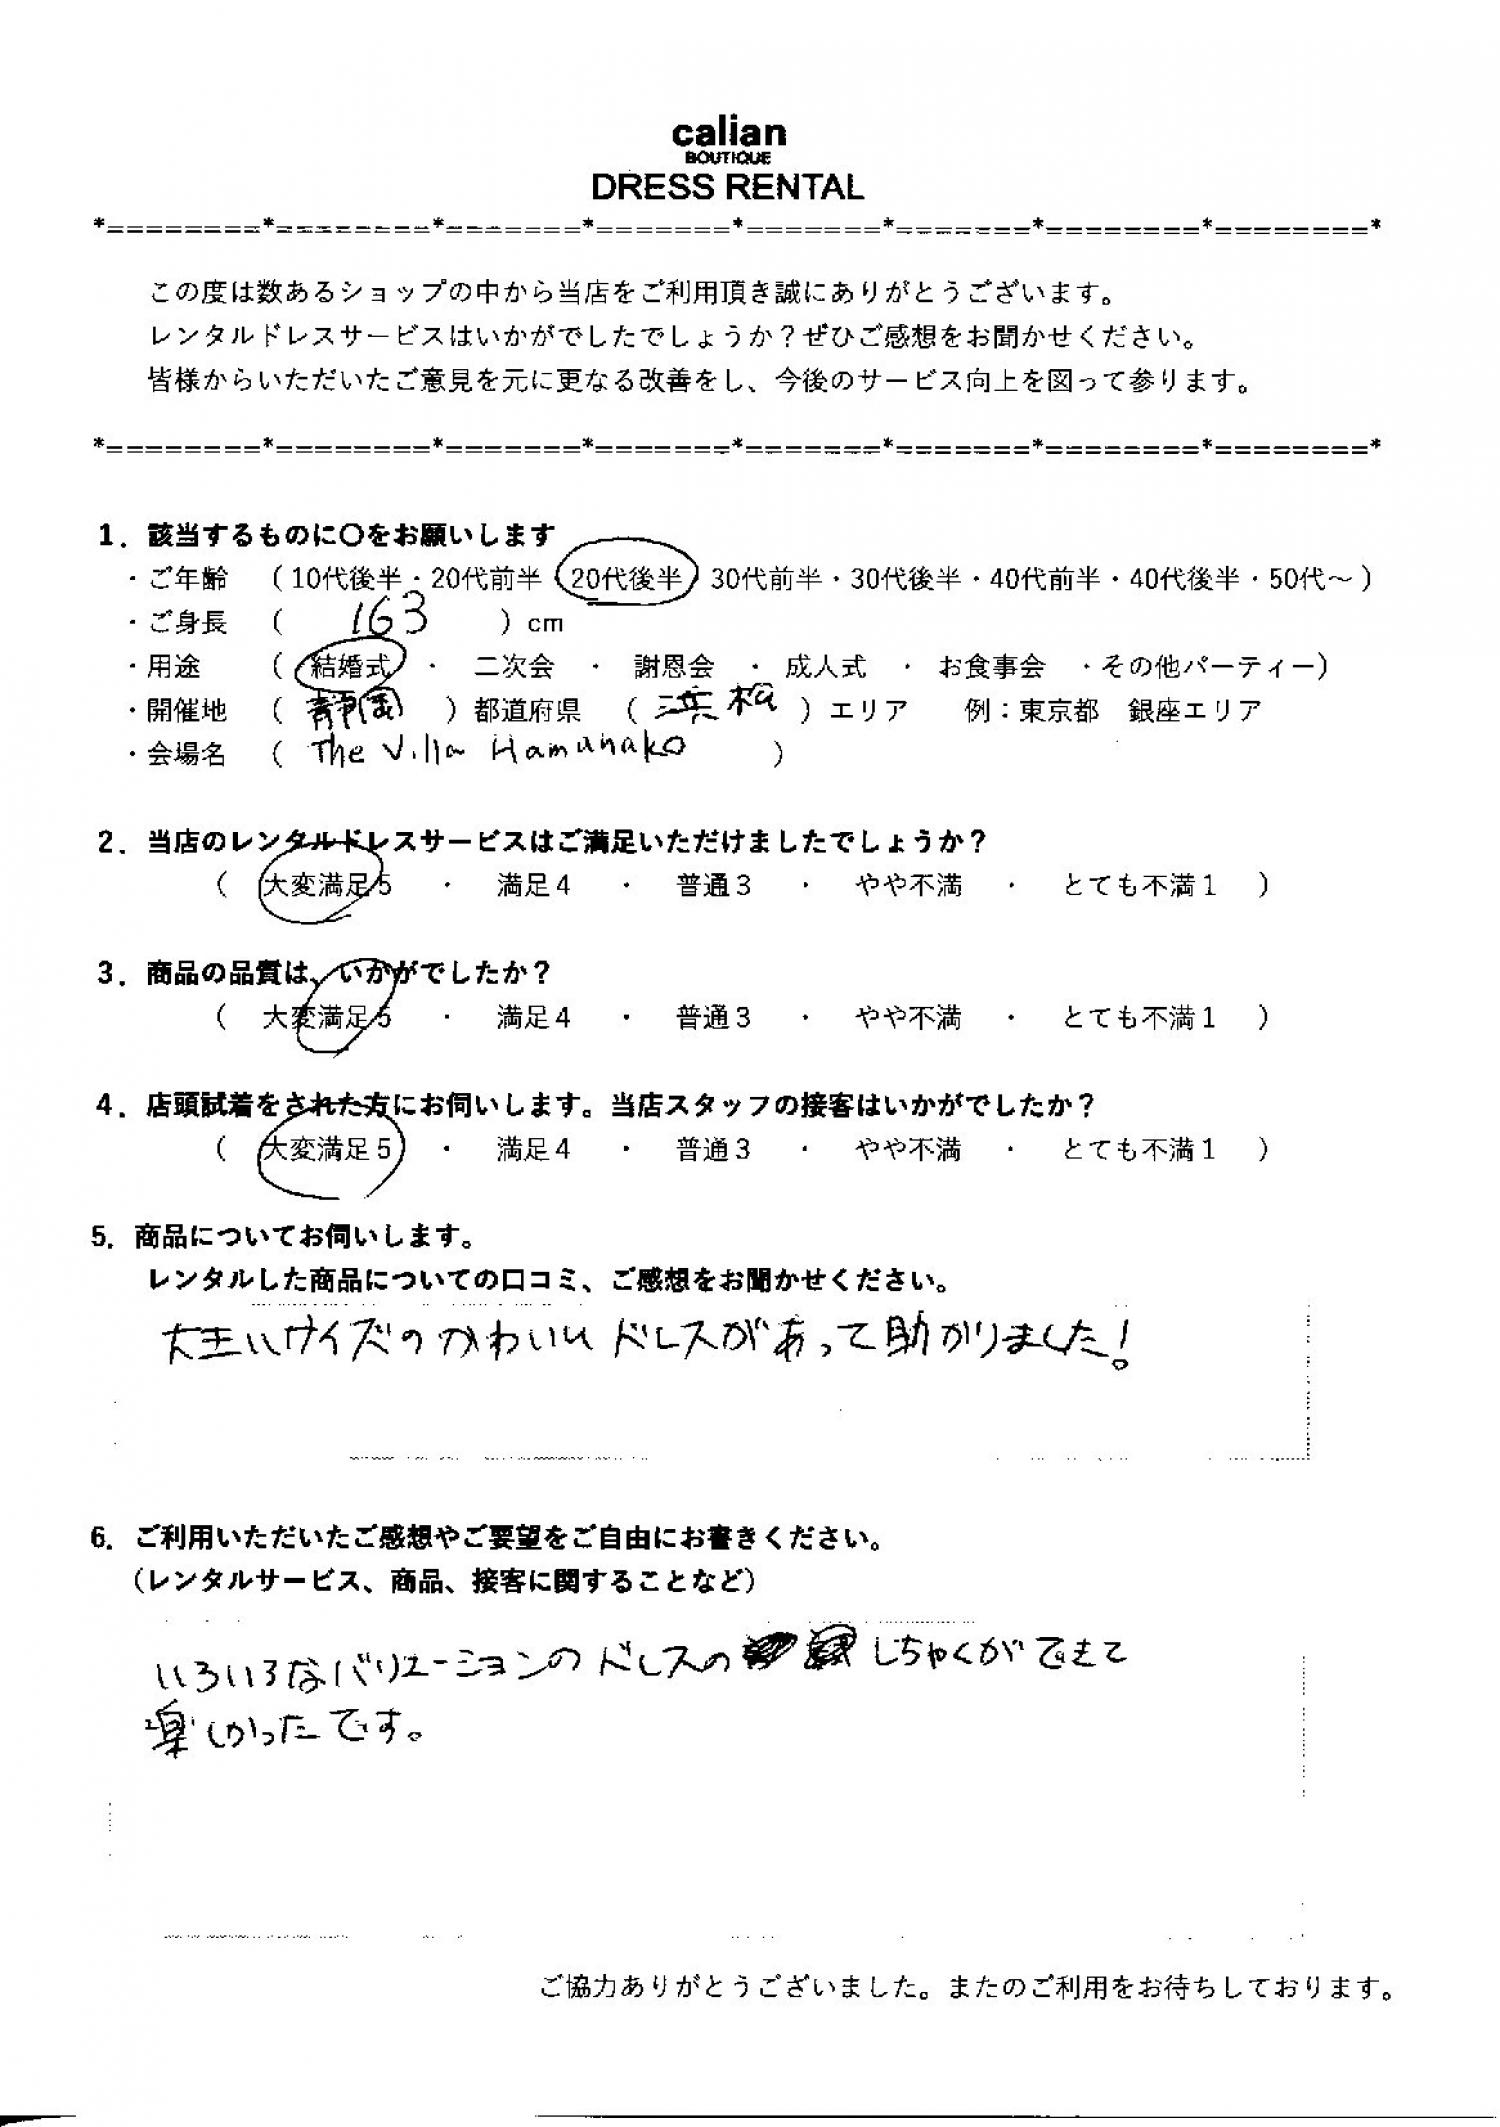 calian
BOUTIQUE
DRESS RENTAL
*========*========*=======*=======*=======*=======*========*========*
この度は数あるショップの中から当店をご利用頂き誠にありがとうございます。
レンタルドレスサービスはいかがでしたでしょうか？ぜひご感想をお聞かせください。
皆様からいただいたご意見を元に更なる改善をし、今後のサービス向上を図って参ります。
*========*========*=======*=======*=======*=======*========*========*
1．該当するものに〇をお願いします
・ご年齢 （ 10代後半・20代前半・20代後半・30代前半・30代後半・40代前半・40代後半・50代～ ）
・ご身長 （ 163 ）cm
・用途 （ 結婚式 ・ 二次会 ・ 謝恩会 ・ 成人式 ・ お食事会 ・その他パーティー）
・開催地 （ 静岡 ）都道府県 （ 浜松 ）エリア 例：東京都 銀座エリア
・会場名 （ The Villa Hamanako ）
2．当店のレンタルドレスサービスはご満足いただけましたでしょうか？
（ 大変満足5 ・ 満足4 ・ 普通3 ・ やや不満 ・ とても不満1 ）
3．商品の品質は、いかがでしたか？
（ 大変満足5 ・ 満足4 ・ 普通3 ・ やや不満 ・ とても不満1 ）
4．店頭試着をされた方にお伺いします。当店スタッフの接客はいかがでしたか？
（ 大変満足5 ・ 満足4 ・ 普通3 ・ やや不満 ・ とても不満1 ）
5．商品についてお伺いします。
レンタルした商品についての口コミ、ご感想をお聞かせください。
大きいサイズのかわいいドレスがあって助かりました！
6．ご利用いただいたご感想やご要望をご自由にお書きください。
（レンタルサービス、商品、接客に関することなど）
いろいろなバリエーションのドレスの しちゃくができて
楽しかったです。
ご協力ありがとうございました。またのご利用をお待ちしております。